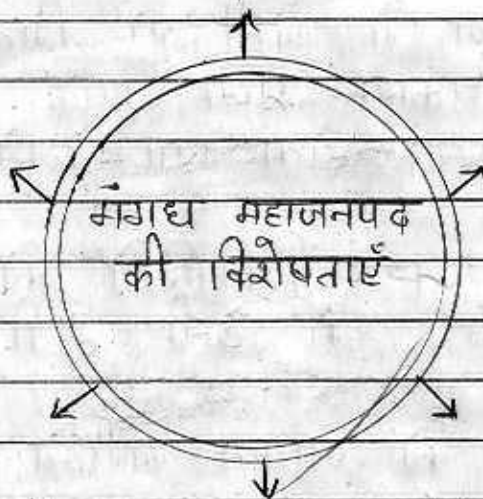 मंगध महाजनपद
की विशेषताएँ